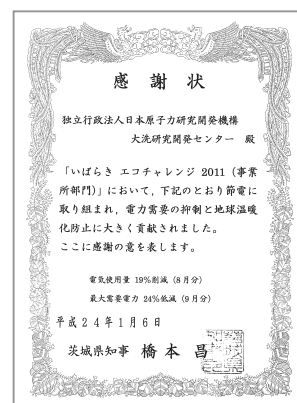 感謝状
独立行政法人日本原子力研究開発機構
大洗研究開発センター 殿
「いばらき エコチャレンジ 2011（事業
所部門）」において，下記のとおり節電に
取り組まれ，電力需要の抑制と地球温暖
化防止に大きく貢献されました。
ここに感謝の意を表します。
電気使用量 19%削減（8月分）
最大需要電力 24%低減（9月分）
平成24年1月6日
茨城県知事 橋本 昌